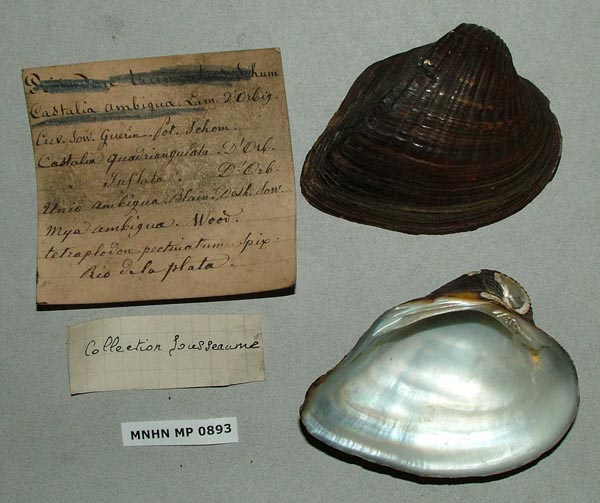 Schum
Castalia ambigua. Lam. D'Orbig.
Cuv. Sow. Guérin. Pot. Schom.
Castalia quadrangulata. D'Orb.
Inflata. D'Orb.
Unio ambigua. Blain. Desh. Sow.
Mya ambigua. Wood.
tetraplodon pectinatum. Spix.
Rio de la plata.
Collection Jousseaume
MNHN MP 0893